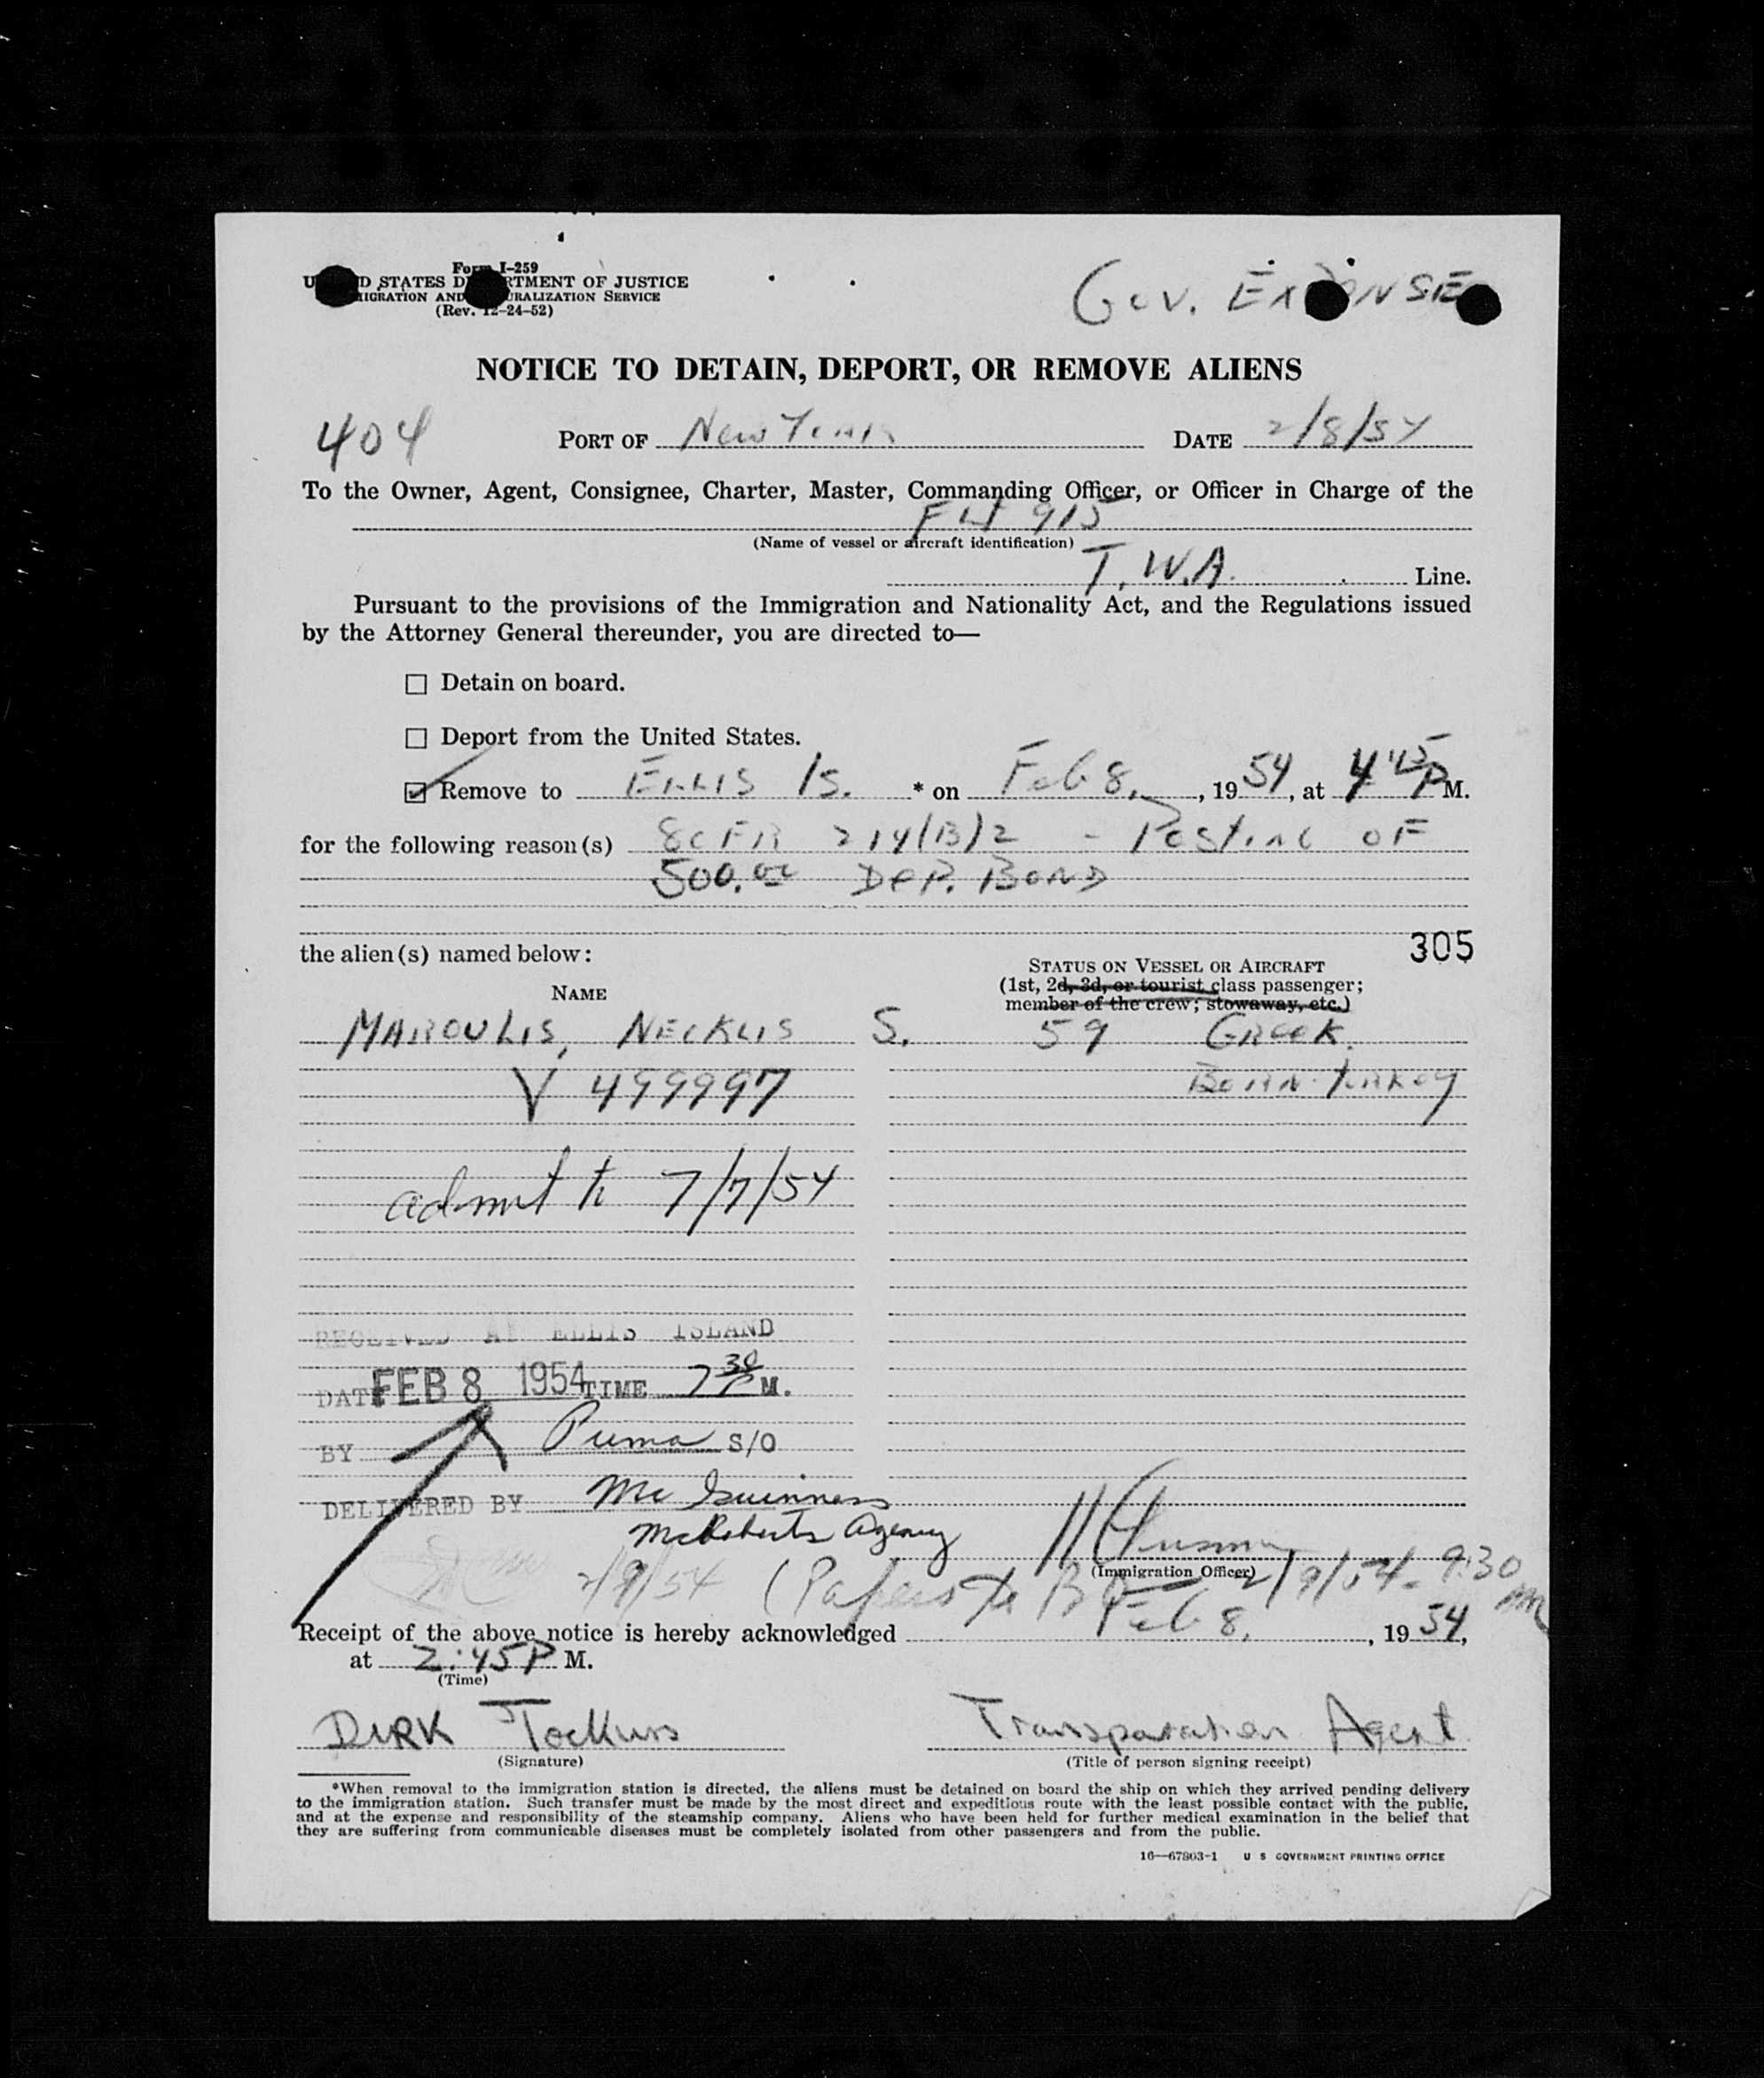 Form I-259
UNITED STATES DEPARTMENT OF JUSTICE
IMMIGRATION AND NATURALIZATION SERVICE
(Rev. 12-24-52)
Gov. EXPENSE
NOTICE TO DETAIN, DEPORT, OR REMOVE ALIENS
404 PORT OF New York DATE 2/8/54
To the Owner, Agent, Consignee, Charter, Master, Commanding Officer, or Officer in Charge of the
FLT 915
(Name of vessel or aircraft identification)
T.W.A. Line.
Pursuant to the provisions of the Immigration and Nationality Act, and the Regulations issued
by the Attorney General thereunder, you are directed to—
☐ Detain on board.
☐ Deport from the United States.
☑ Remove to ELLIS IS. * on Feb 8, , 19 54, at 4 45 P M.
for the following reason(s) 8 CFR 214(B)2 - Posting OF
500.00 DEP. BOND
the alien(s) named below: 305
STATUS ON VESSEL OR AIRCRAFT
(1st, 2d, 3d, or tourist class passenger;
member of the crew; stowaway, etc.)
NAME
MAROULIS, NECKLIS S. 59 GREEK.
BORN TURKEY
V 499997
admit to 7/7/54
RECEIVED AT ELLIS ISLAND
DATE FEB 8 1954 TIME 7 30 P M.
BY Puma S/O
DELIVERED BY McGuinness
McRoberts Agency
(Immigration Officer)
2/9/54 (Papers to 2/9/54 - 9:30 AM
Receipt of the above notice is hereby acknowledged Feb 8, , 19 54,
at 2:45 P M.
(Time)
DIRK Transportation Agent
(Signature) (Title of person signing receipt)
*When removal to the immigration station is directed, the aliens must be detained on board the ship on which they arrived pending delivery
to the immigration station. Such transfer must be made by the most direct and expeditious route with the least possible contact with the public,
and at the expense and responsibility of the steamship company. Aliens who have been held for further medical examination in the belief that
they are suffering from communicable diseases must be completely isolated from other passengers and from the public.
16—67803-1 U S GOVERNMENT PRINTING OFFICE